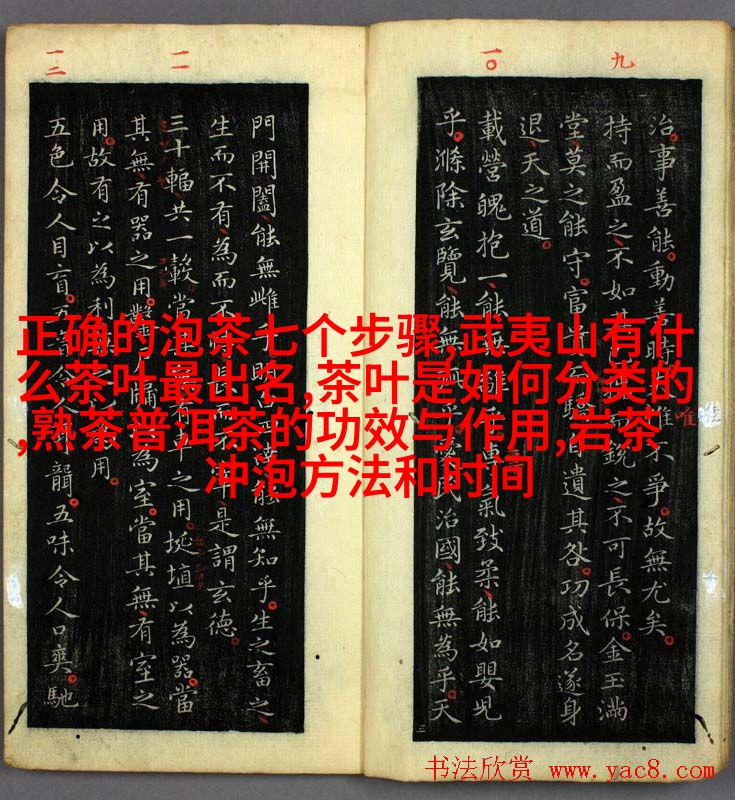 正确的泡茶七个步骤,武夷山有什
么茶叶最出名,茶叶是如何分类的
,熟茶普洱茶的功效与作用,岩茶
冲泡方法和时间
九
治。事善能。動善時 唯不爭。故無尤矣。
持而盈之不如其 而銳之不可長保。金玉滿
堂莫之能守。富 自遺其咎。功成名遂身
退天之道。
一〇
載營魄抱一能無 專氣致柔能如嬰兒
乎。滌除玄覽能無 民治國能無為乎。天
一一
門開闔能無雌乎 能無知乎。生之畜之
生而不有為而不 是謂玄德。
一二
三十輻共一轂當 有車之用。埏埴以為器當
其無有器之用。鑿 牖 為室。當其無有室之
用。故有之以為利 用。
五色令人目盲。五音令人 聾。五味令人口爽。馳
唯
书法欣赏 www.yac8.com